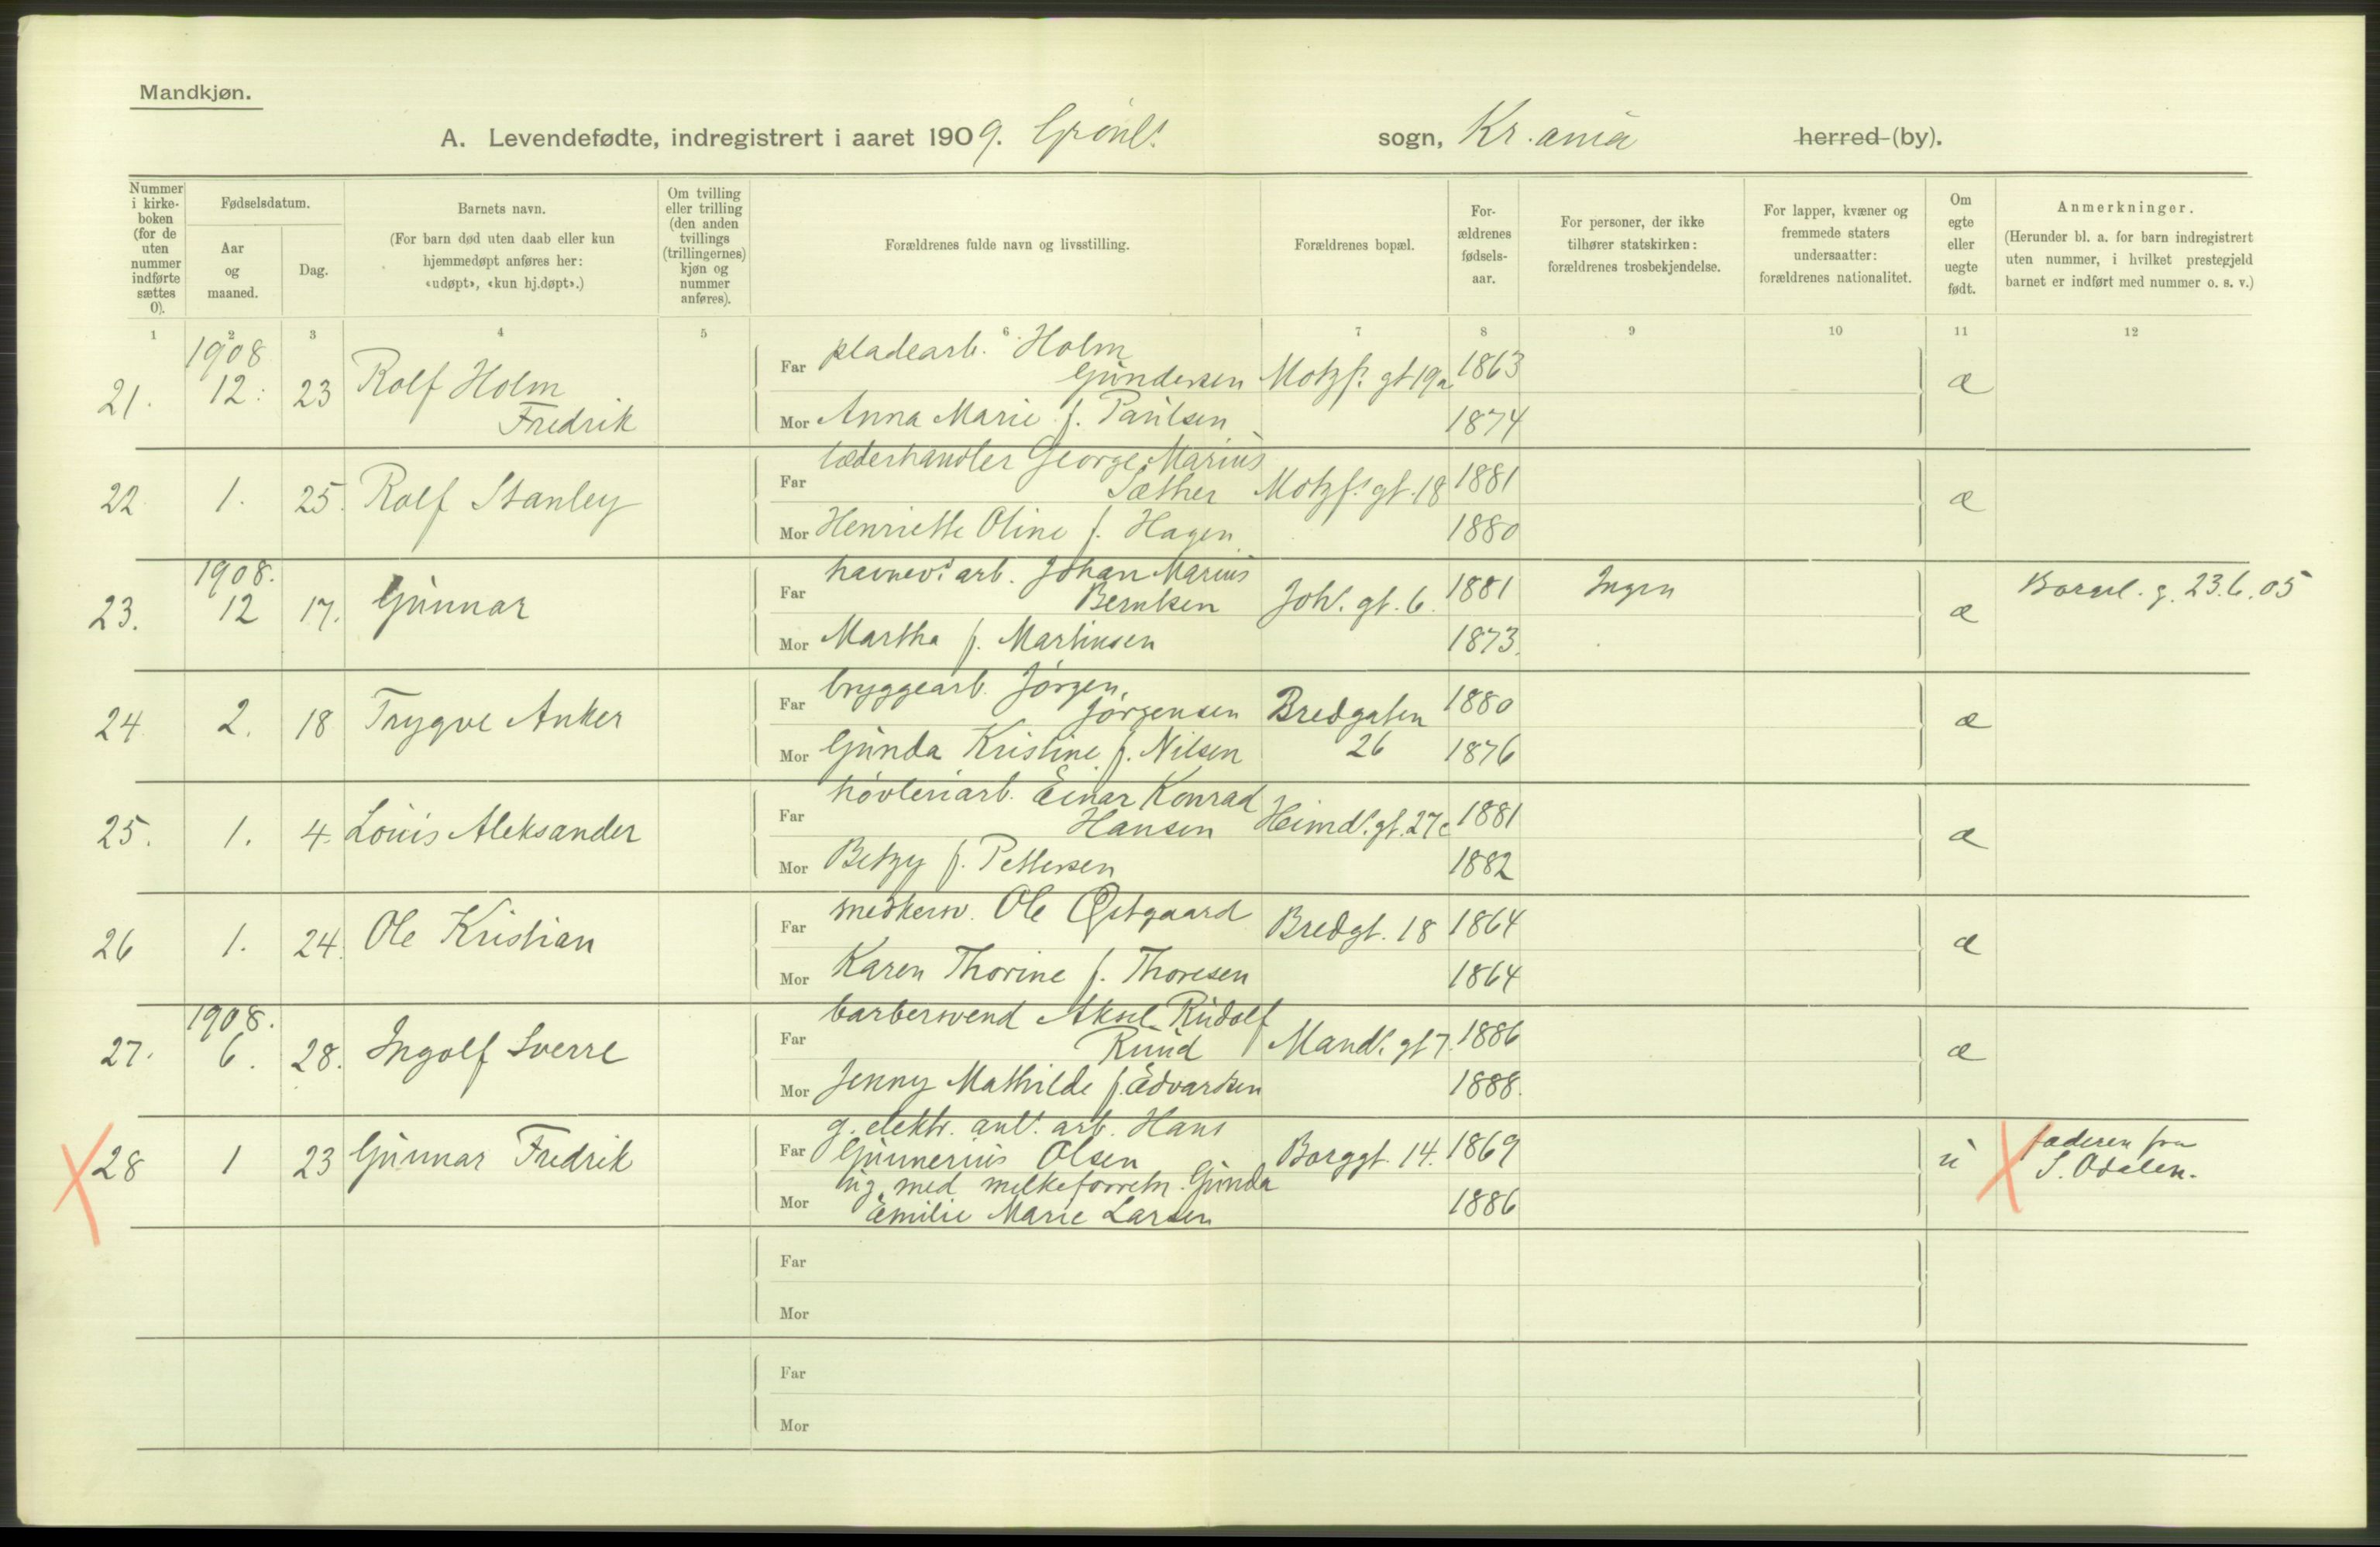 Mandkjøn.
A. Levendefødte, indregistrert i aaret 1909. Grønl. sogn, Kr.ania herred (by).
Nummer i kirke-boken (for de uten nummer indførte sættes 0).
Fødselsdatum.
Aar og maaned.
Dag.
Barnets navn.
(For barn død uten daab eller kun hjemmedøpt anføres her: «udøpt», «kun hj.døpt».)
Om tvilling eller trilling (den anden tvillings (trillingernes) kjøn og nummer anføres).
Forældrenes fulde navn og livsstilling.
Forældrenes bopæl.
For-ældrenes fødsels-aar.
For personer, der ikke tilhører statskirken: forældrenes trosbekjendelse.
For lapper, kvæner og fremmede staters undersaatter: forældrenes nationalitet.
Om egte eller uegte født.
Anmerkninger.
(Herunder bl. a. for barn indregistrert uten nummer, i hvilket prestegjeld barnet er indført med nummer o. s. v.)
1 2 3 4 5 6 7 8 9 10 11 12
21. 1908 12. 23 Rolf Holm Fredrik
Far pladearb. Holm Gundersen Motzf. gt 19a 1863 æ
Mor Anna Marie f. Paulsen 1874
22 1. 25. Rolf Stanley
Far læderhandler George Marius Sæther Motzf. gt. 18 1881 æ
Mor Henriette Oline f. Hagen 1880
23. 1908. 12 17. Gunnar
Far havnev. arb. Johan Marius Berntsen Joh. gt. 6. 1881 Ingen æ Borgerl. g. 23.6.05
Mor Martha f. Martinsen 1873.
24 2. 18 Trygve Anker
Far bryggearb. Jørgen Jørgensen Bredgaten 26 1880 æ
Mor Gunda Kristine f. Nilsen 1876
25. 1. 4. Louis Aleksander
Far høvleriarb. Einar Konrad Hansen Heimd. gt. 27c 1881 æ
Mor Betzy f. Pettersen 1882
26 1. 24. Ole Kristian
Far snedkersv. Ole Østgaard Bredgt. 18 1864 æ
Mor Karen Thorine f. Thoresen 1864
27. 1908. 6. 28. Ingolf Sverre
Far barbersvend Aksel Rudolf Ruud Mand. gt 7. 1886 æ
Mor Jenny Mathilde f. Edvardsen 1888.
28 1 23 Gunnar Fredrik
Far g. elektr. anl. arb. Hans Gunnerius Olsen Borggt. 14. 1869 u faderen fra S. Odalen.
Mor ug. med melkeforretn. Gunda Emilie Marie Larsen 1886
Far
Mor
Far
Mor